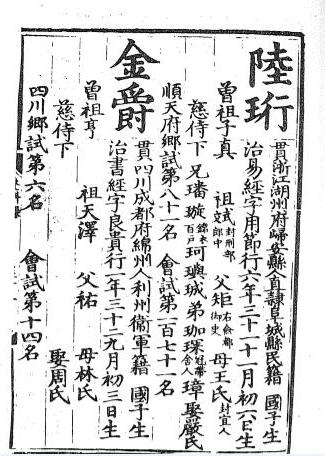 陸珩
貫浙江湖州府歸安縣直隸阜城縣民籍 國子生
治易經字用節行六年三十一十一月初六日生
曾祖子真 祖式封刑部郎中 父矩右僉都御史 母王氏封宜人
慈侍下 兄璠 璇錦衣百戶 珂 璵 珹 弟珈 琛冠帶舍人 璋 娶嚴氏
順天府鄉試第八十一名 會試第二百七十一名
金爵
貫四川成都府綿州人利州衛軍籍 國子生
治書經字良貴行八年三十二九月初三日生
曾祖亨 祖天澤 父祐 母林氏
慈侍下 娶周氏
四川鄉試第六名 會試第十四名